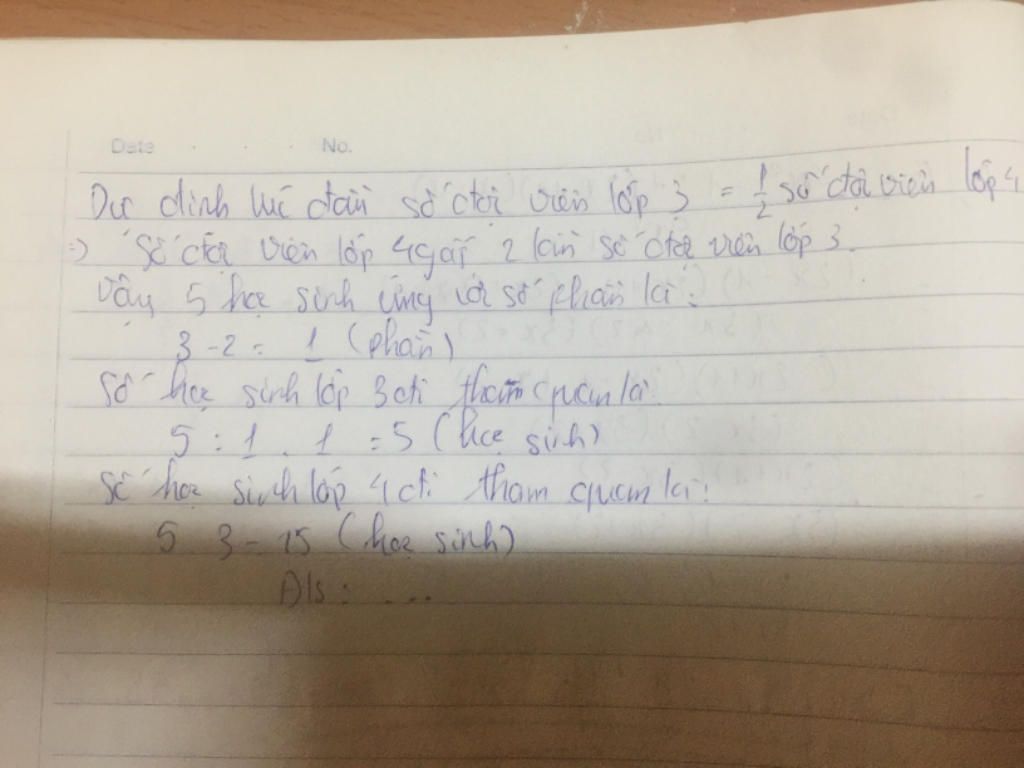 Date No.
Dự định lúc đầu số đội viên lớp 3 = 1/2 số đội viên lớp 4
=) Số đội viên lớp 4 gấp 2 lần số đội viên lớp 3.
Vậy 5 học sinh ứng với số phần là:
3 - 2 = 1 (phần)
Số học sinh lớp 3 đi tham quan là:
5 : 1 . 1 = 5 (học sinh)
Số học sinh lớp 4 đi tham quan là:
5 3 = 15 (học sinh)
Đ/s: ...